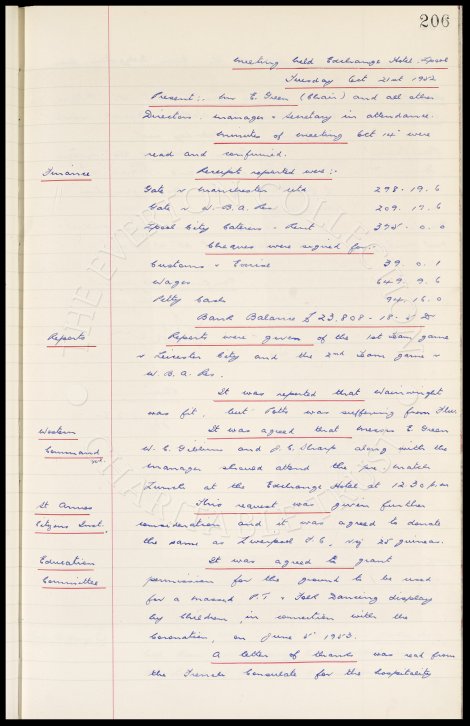 206
Meeting held Exchange Hotel. Lpool
Tuesday Oct 21st 1952
Present:- Mr E. Green (Chair) and all other
Directors. Manager & Secretary in attendance.
Minutes of meeting Oct 14 were
read and confirmed.
Finance Receipts reported were:-
Gate v Manchester Utd 298. 19. 6
Gate v W.B.A. Res 209. 17. 6
Lpool City Caterers - Rent 375. 0. 0
Cheques were signed for:-
Customs & Excise 39. 0. 1
Wages 649. 9. 6
Petty Cash 94. 16. 0
Bank Balance £23,808 - 18 - 5 Dr
Reports Reports were given of the 1st Team game
v Leicester City and the 2nd Team game v
W.B.A. Res.
It was reported that Wainwright
was fit, but Potts was suffering from Flu.
Western It was agreed that Messrs E. Green
Command W.C. Gibbins and J.C. Sharp along with the
Manager should attend the pre match
Lunch at the Exchange Hotel at 12.30 p.m
St Annes This request was given further
Citizens Inst. consideration and it was agreed to donate
the same as Liverpool F.C. viz 25 guineas.
Education It was agreed to grant
Committee permission for the ground to be used
for a massed P.T. & Folk Dancing display
by Children, in connection with the
Coronation, on June 5 1953.
A letter of thanks was read from
the French Consulate for the hospitality
THE EVERTON COLLECTION
CHARITABLE TRUST